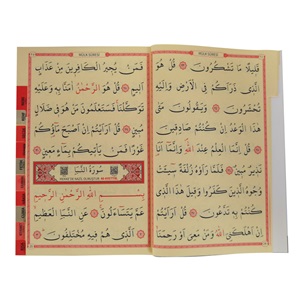 MÜLK SÛRESİ
قَلِيلًا مَا تَشْكُرُونَ قُلْ هُوَ
الَّذِي ذَرَأَكُمْ فِي الْأَرْضِ وَإِلَيْهِ
تُحْشَرُونَ وَيَقُولُونَ مَتَى
هَذَا الْوَعْدُ إِنْ كُنْتُمْ صَادِقِينَ
قُلْ إِنَّمَا الْعِلْمُ عِنْدَ اللَّهِ وَإِنَّمَا أَنَا
نَذِيرٌ مُبِينٌ فَلَمَّا رَأَوْهُ زُلْفَةً سِيئَتْ
وُجُوهُ الَّذِينَ كَفَرُوا وَقِيلَ هَذَا الَّذِي
كُنْتُمْ بِهِ تَدَّعُونَ قُلْ أَرَأَيْتُمْ
إِنْ أَهْلَكَنِيَ اللَّهُ وَمَنْ مَعِيَ أَوْ رَحِمَنَا
فَمَنْ يُجِيرُ الْكَافِرِينَ مِنْ عَذَابٍ
أَلِيمٍ قُلْ هُوَ الرَّحْمَنُ آمَنَّا بِهِ وَعَلَيْهِ
تَوَكَّلْنَا فَسَتَعْلَمُونَ مَنْ هُوَ فِي ضَلَالٍ
مُبِينٍ قُلْ أَرَأَيْتُمْ إِنْ أَصْبَحَ مَاؤُكُمْ
غَوْرًا فَمَنْ يَأْتِيكُمْ بِمَاءٍ مَعِينٍ
سُورَةُ النَّبَإِ
بِسْمِ اللَّهِ الرَّحْمَنِ الرَّحِيمِ
عَمَّ يَتَسَاءَلُونَ عَنِ النَّبَإِ الْعَظِيمِ
الَّذِي هُمْ فِيهِ مُخْتَلِفُونَ